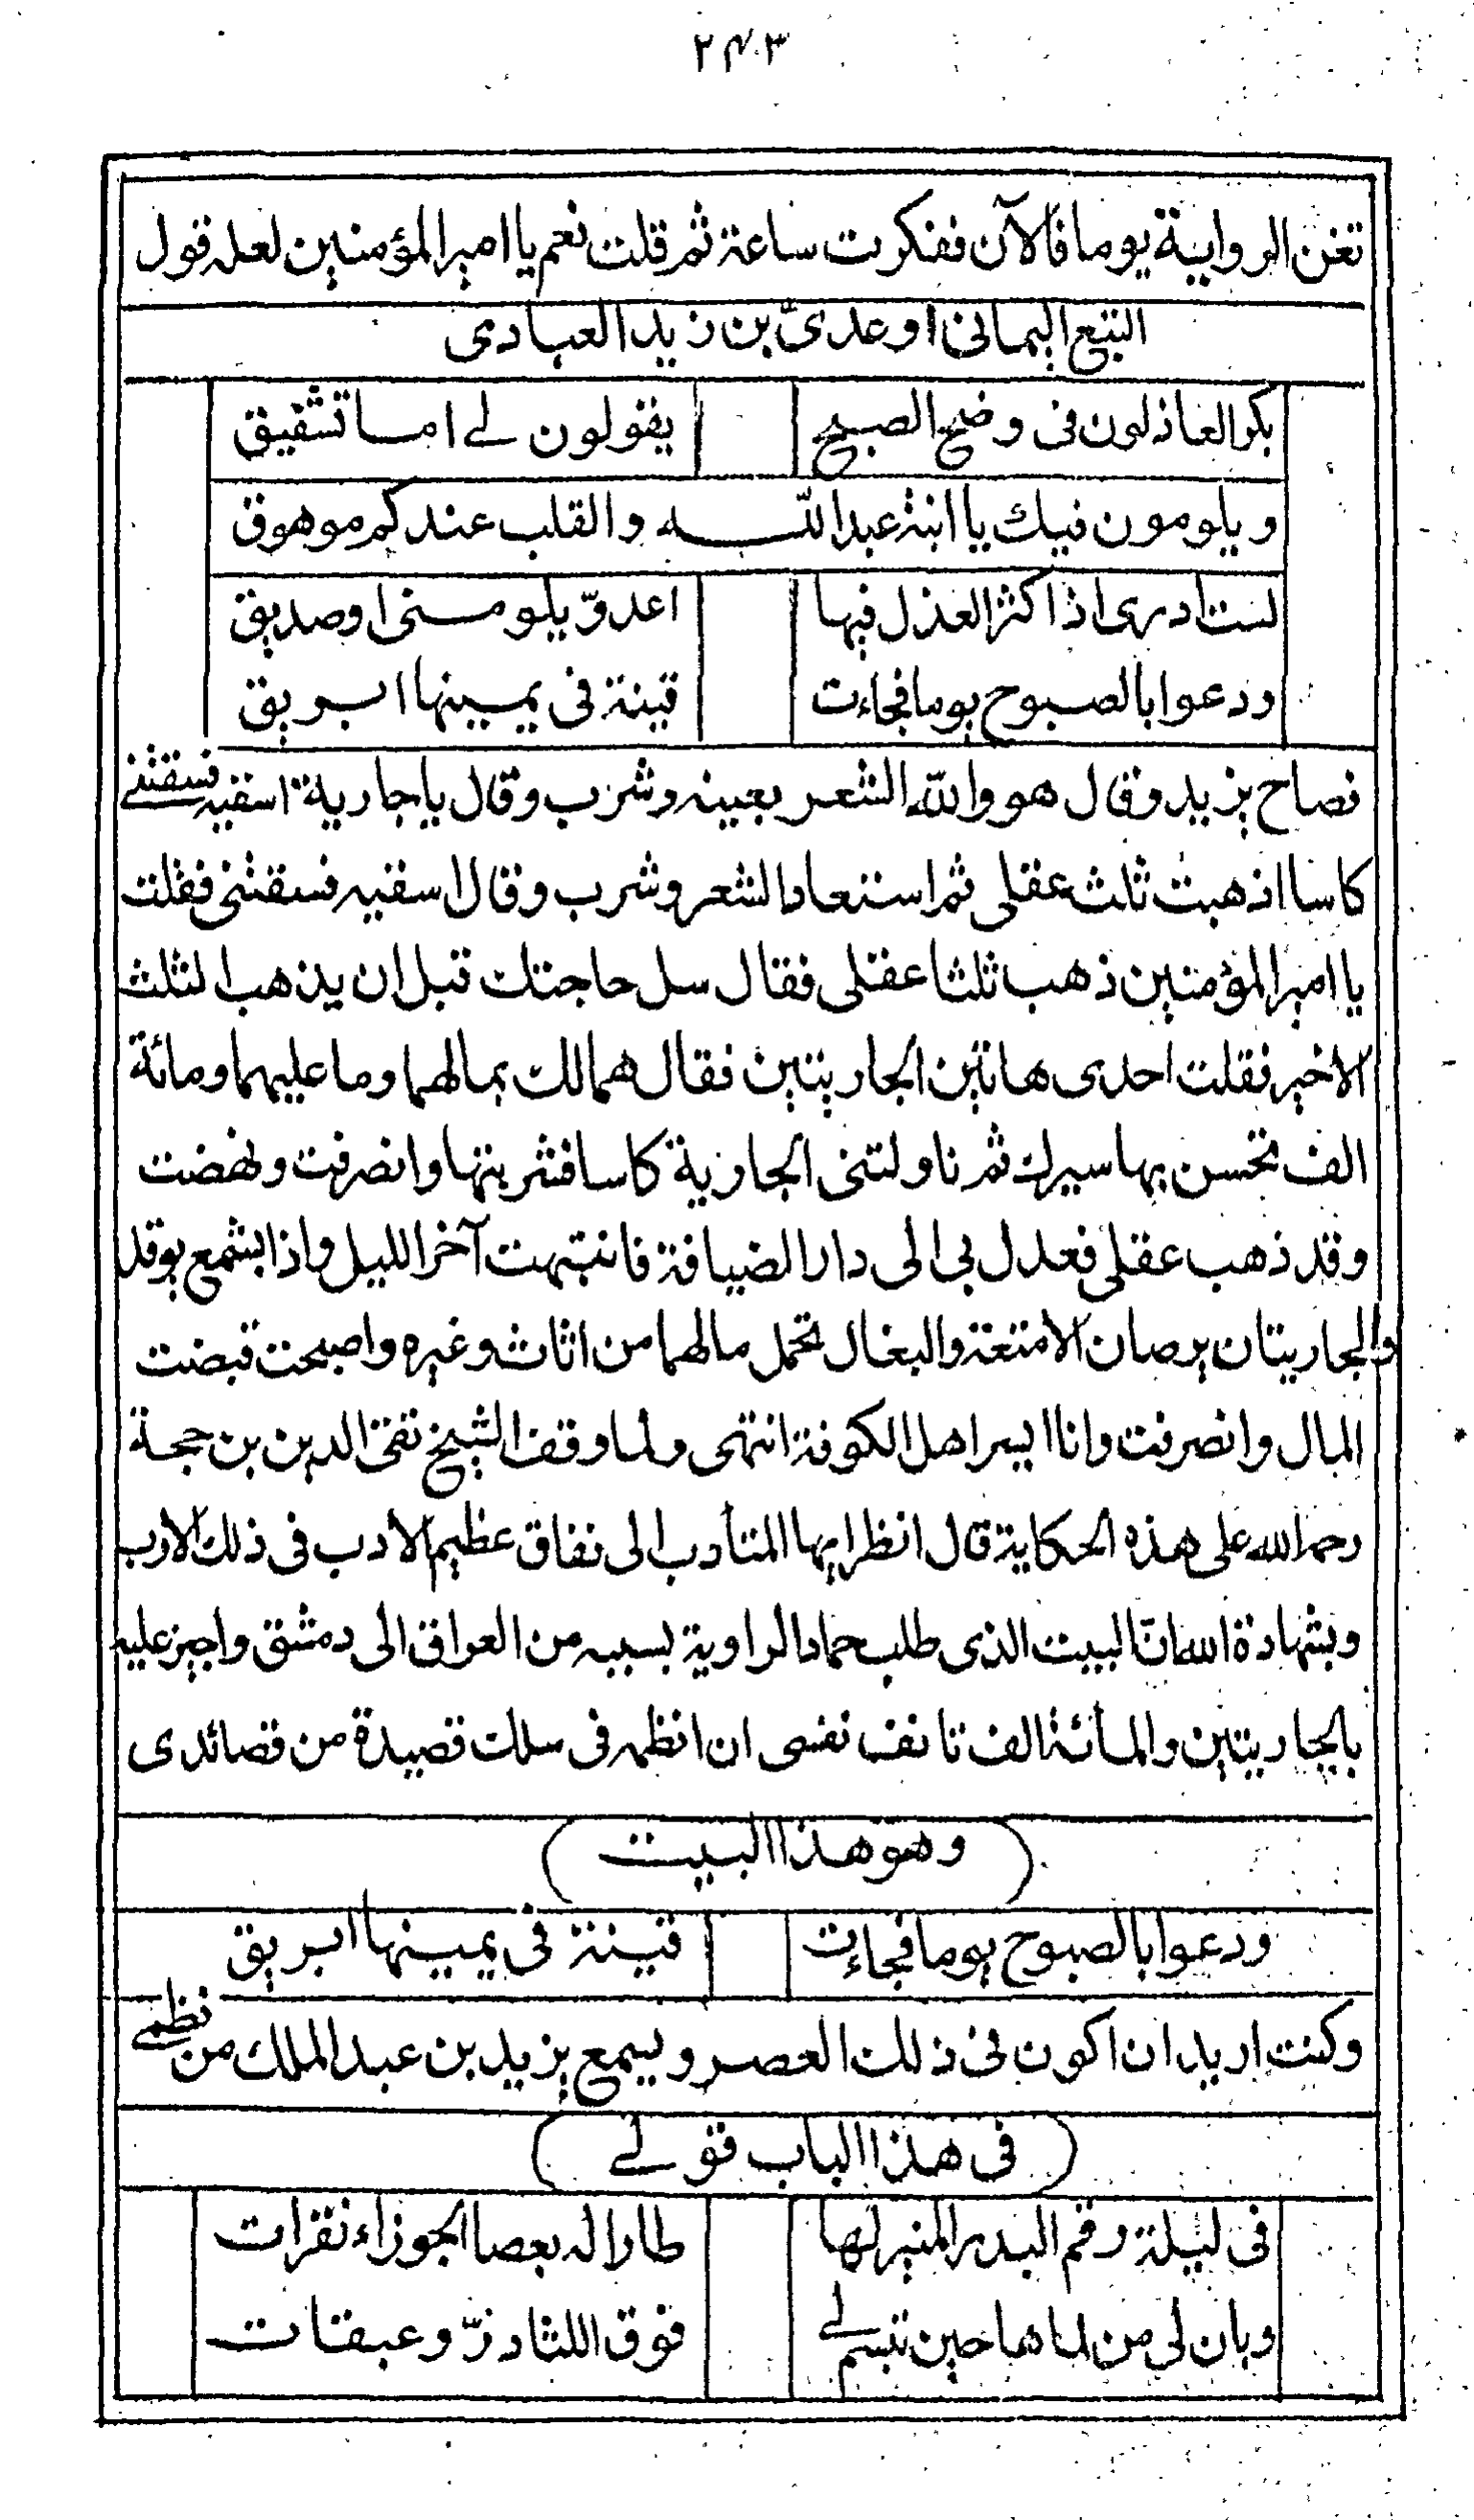 ۲۴۳
تغن الرواية يوما فالآن ففكرت ساعة ثم قلت نعم يا امير المؤمنين لعله قول
التبع اليمانى او عدىّ بن زيد العبادى
بكر العاذلون فى وضح الصبح يقولون لے اما تشفيق
ويلومون فيك يا ابنة عبد اللّه والقلب عندكم موهوق
لست ادرى اذ اكثر العذل فيها اعدوّ يلومنى او صديق
ودعوا بالصبوح يوما فجاءت قينة فى يمينها ابريق
فصاح يزيد وقال هو واللّه الشعر بعينه وشرب وقال يا جارية اسقيه فسقتنے
كاسا اذهبت ثلث عقلى ثم استعاد الشعر وشرب وقال اسقيه فسقتنى فقلت
يا امير المؤمنين ذهب ثلثا عقلى فقال سل حاجتك قبل ان يذهب الثلث
الاخير فقلت احدى هاتين الجاريتين فقال هما لك بما لهما وما عليهما ومائة
الف تحسن بها سيرك ثم ناولتنى الجارية كاسا فشربتها وانصرفت ونهضت
وقد ذهب عقلى فعدل بى الى دار الضيافة فانتبهت آخر الليل واذا بشمع يوقد
والجاريتان يرصان الامتعة والبغال تحمل ما لهما من اثاث وغيره واصبحت قبضت
المال وانصرفت وانا ايسر اهل الكوفة انتهى ولما وقف الشيخ تقى الدين بن حجة
رحمه الله على هذه الحكاية قال انظر ايها المتأدب الى نفاق عظيم الادب فى ذلك الارب
وبشهادة الله انّ البيت الذى طلب حماد الراوية بسببه من العراق الى دمشق واجيز عليه
بالجاريتين والمائة الف تانف نفسى ان انظمه فى سلك قصيدة من قصائدى
(وهو هذا البيت)
ودعوا بالصبوح يوما فجاءت قينة فى يمينها ابريق
وكنت اريد ان اكون فى ذلك العصر ويسمع يزيد بن عبد الملك من نظمے
(فى هذا الباب قولے)
فى ليلة رقم البدر المنير لها طارا له بعصا الجوزاء نقرات
وبان لى من لماها حين تبسم لے فوق اللثا درّ وعبقات